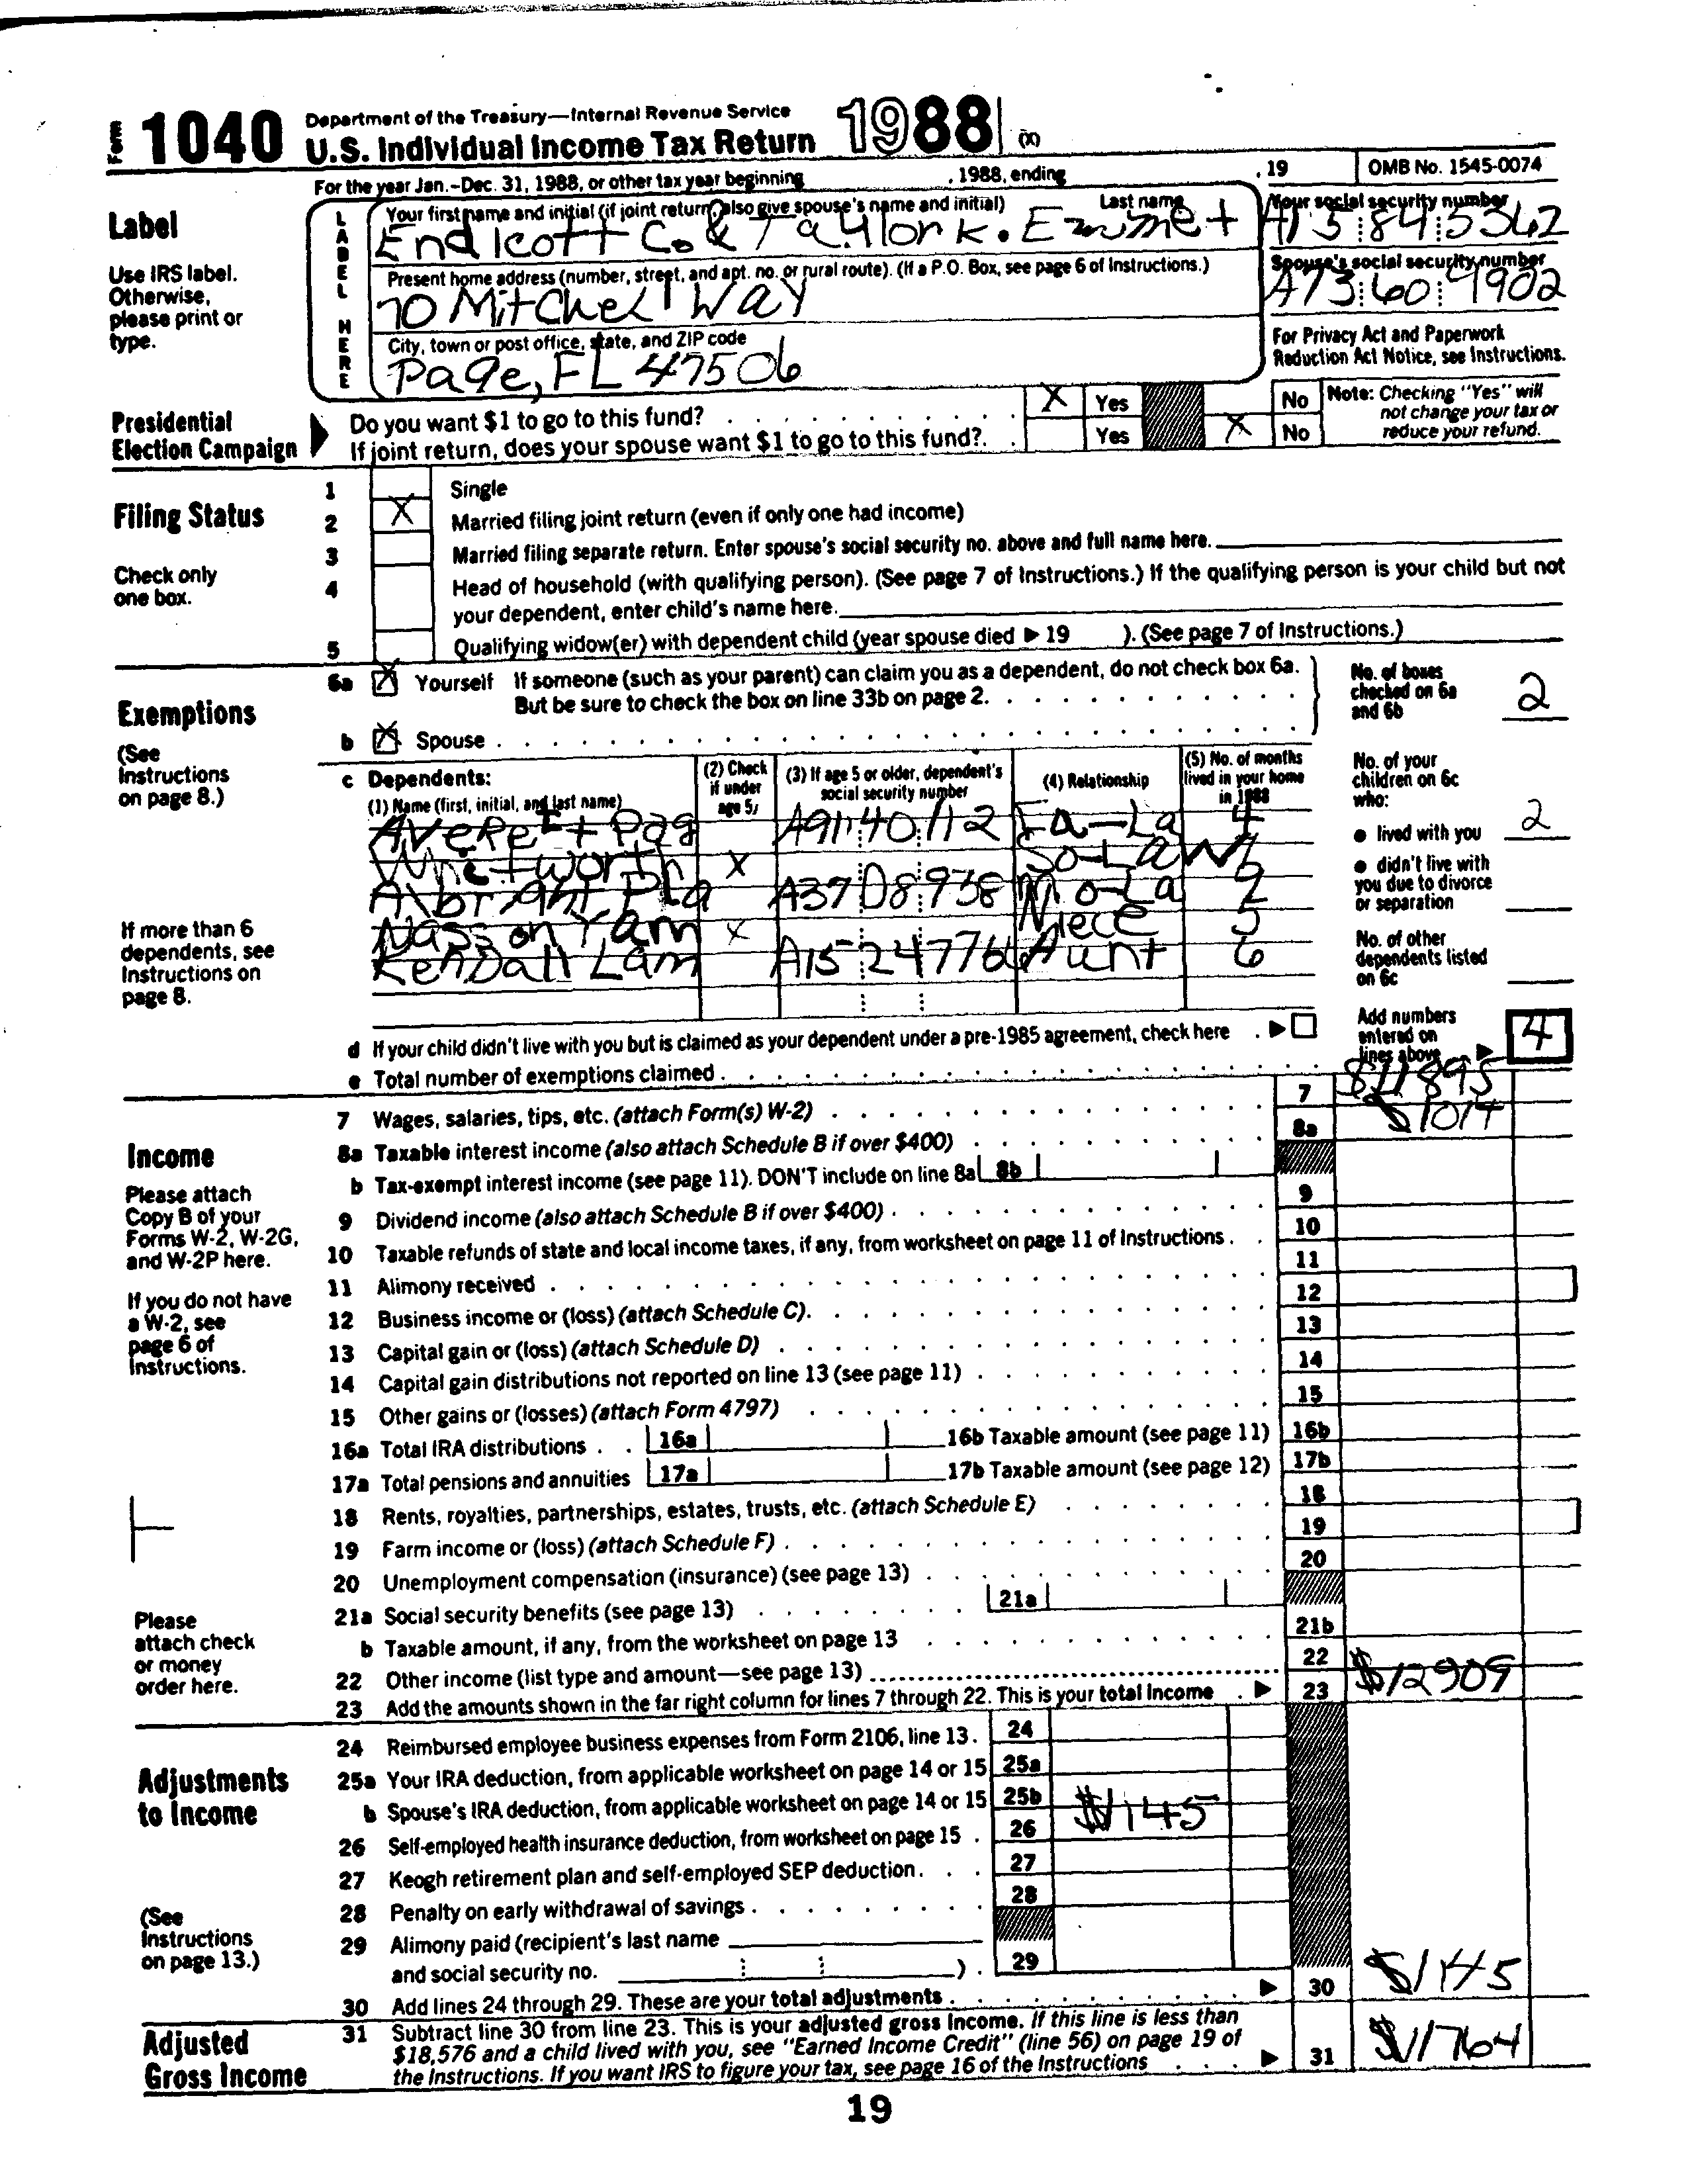 Form 1040 Department of the Treasury—Internal Revenue Service
U.S. Individual Income Tax Return 1988 (X)
For the year Jan.-Dec. 31, 1988, or other tax year beginning , 1988, ending , 19 OMB No. 1545-0074
Label
Use IRS label.
Otherwise,
please print or
type.
LABEL HERE
Your first name and initial (if joint return, also give spouse's name and initial) Last name
Endicott Co & Taylor K. Emmet
Your social security number
A13 84 5362
Present home address (number, street, and apt. no. or rural route). (If a P.O. Box, see page 6 of Instructions.)
70 Mitchel Way
Spouse's social security number
A73 60 9902
City, town or post office, state, and ZIP code
Page, FL 47506
For Privacy Act and Paperwork
Reduction Act Notice, see Instructions.
Presidential
Election Campaign
Do you want $1 to go to this fund? X Yes No
If joint return, does your spouse want $1 to go to this fund? Yes X No
Note: Checking "Yes" will
not change your tax or
reduce your refund.
Filing Status
Check only
one box.
1 Single
2 X Married filing joint return (even if only one had income)
3 Married filing separate return. Enter spouse's social security no. above and full name here.
4 Head of household (with qualifying person). (See page 7 of Instructions.) If the qualifying person is your child but not
your dependent, enter child's name here.
5 Qualifying widow(er) with dependent child (year spouse died ▶ 19 ). (See page 7 of Instructions.)
Exemptions
(See
Instructions
on page 8.)
6a X Yourself If someone (such as your parent) can claim you as a dependent, do not check box 6a.
But be sure to check the box on line 33b on page 2.
b X Spouse
No. of boxes
checked on 6a
and 6b 2
c Dependents:
(1) Name (first, initial, and last name)
(2) Check
if under
age 5
(3) If age 5 or older, dependent's
social security number
(4) Relationship
(5) No. of months
lived in your home
in 1988
Averett Pag A91 40 112 Fa-La 4
X So-Law
A37 D8 938 Mo-La 2
Nasson Yam X Niece 5
Kendall Lam A15 24 776 Aunt 6
If more than 6
dependents, see
Instructions on
page 8.
No. of your
children on 6c
who:
● lived with you 2
● didn't live with
you due to divorce
or separation
No. of other
dependents listed
on 6c
d If your child didn't live with you but is claimed as your dependent under a pre-1985 agreement, check here ▶
e Total number of exemptions claimed
Add numbers
entered on
lines above ▶ 4
Income
Please attach
Copy B of your
Forms W-2, W-2G,
and W-2P here.
If you do not have
a W-2, see
page 6 of
Instructions.
Please
attach check
or money
order here.
7 Wages, salaries, tips, etc. (attach Form(s) W-2) 7 $11895
8a Taxable interest income (also attach Schedule B if over $400) 8a $1014
b Tax-exempt interest income (see page 11). DON'T include on line 8a 8b
9 Dividend income (also attach Schedule B if over $400) 9
10 Taxable refunds of state and local income taxes, if any, from worksheet on page 11 of Instructions 10
11 Alimony received 11
12 Business income or (loss) (attach Schedule C) 12
13 Capital gain or (loss) (attach Schedule D) 13
14 Capital gain distributions not reported on line 13 (see page 11) 14
15 Other gains or (losses) (attach Form 4797) 15
16a Total IRA distributions 16a 16b Taxable amount (see page 11) 16b
17a Total pensions and annuities 17a 17b Taxable amount (see page 12) 17b
18 Rents, royalties, partnerships, estates, trusts, etc. (attach Schedule E) 18
19 Farm income or (loss) (attach Schedule F) 19
20 Unemployment compensation (insurance) (see page 13) 20
21a Social security benefits (see page 13) 21a
b Taxable amount, if any, from the worksheet on page 13 21b
22 Other income (list type and amount—see page 13) 22
23 Add the amounts shown in the far right column for lines 7 through 22. This is your total income ▶ 23 $12909
Adjustments
to Income
(See
Instructions
on page 13.)
24 Reimbursed employee business expenses from Form 2106, line 13 24
25a Your IRA deduction, from applicable worksheet on page 14 or 15 25a
b Spouse's IRA deduction, from applicable worksheet on page 14 or 15 25b $1145
26 Self-employed health insurance deduction, from worksheet on page 15 26
27 Keogh retirement plan and self-employed SEP deduction 27
28 Penalty on early withdrawal of savings 28
29 Alimony paid (recipient's last name
and social security no. ) 29
30 Add lines 24 through 29. These are your total adjustments ▶ 30 $1145
Adjusted
Gross Income
31 Subtract line 30 from line 23. This is your adjusted gross income. If this line is less than
$18,576 and a child lived with you, see "Earned Income Credit" (line 56) on page 19 of
the Instructions. If you want IRS to figure your tax, see page 16 of the Instructions ▶ 31 $11764
19